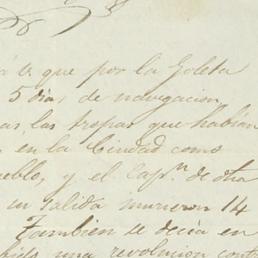 á V. que por la Goleta
5 dias, de navegacion,
as las tropas que habian
en la Ciudad como
ueblo, y el Capn. de otra
su salida murieron 14
Tambien se decia en
una revolucion contr